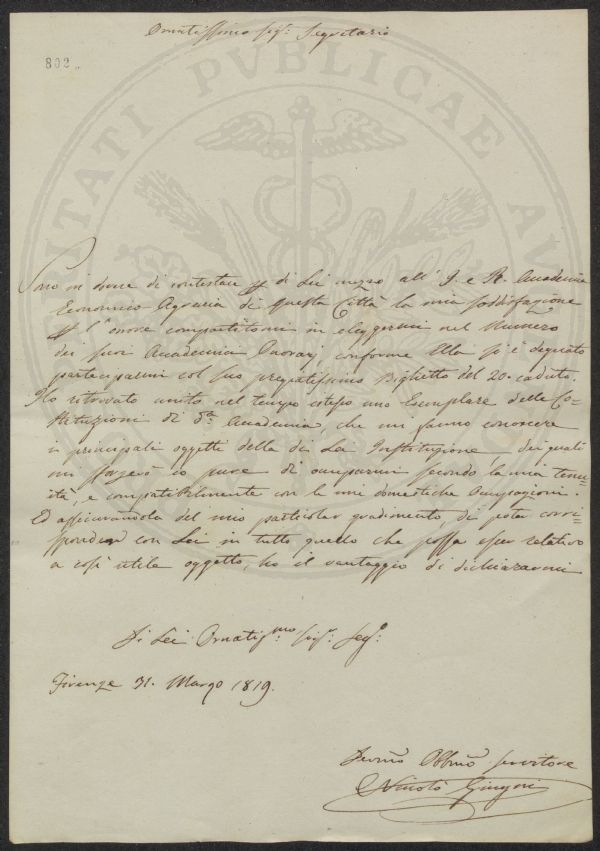 Ornatissimo Sigr. Segretario
802
Sono in dovere di contestare di Lei mezzo all' I. e R. Accademia
Economico Agraria di questa Città la mia soddisfazione
l'onore compartitomi in eleggermi nel Numero
dei suoi Accademici Onorarj conforme Ella si è degnato
parteciparmi col suo pregiatissimo Biglietto del 20. caduto.
Ho ritrovato unito nel tempo istesso uno Esemplare delle Co=
stituzioni di da. Accademia, che mi fanno conoscere
i principali oggetti della di Lei Instituzione, dei quali
mi sforzerò io pure di occuparmi secondo la mia tenu=
ità, e compatibilmente con le mie domestiche occupazioni.
Ed assicurandola del mio particolar gradimento, di poter corri=
spondere con Lei in tutto quello che possa esser relativo
a così utile oggetto, ho il vantaggio di dichiararmi
Di Lei Ornatismo. Sigr. Segr.
Firenze 31. Marzo 1819.
Devmo Obbmo Servitore
Niccolò